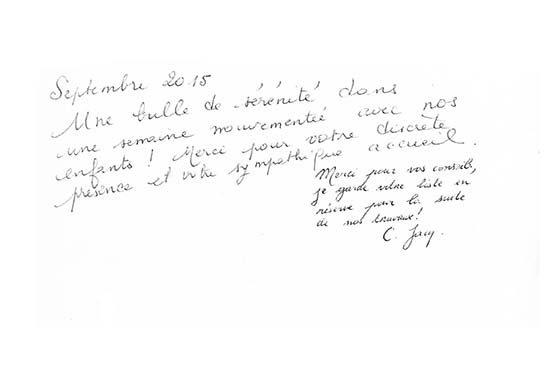 Septembre 2015
Une bulle de sérénité dans
une semaine mouvementée avec nos
enfants ! Merci pour votre discrète
présence et votre sympathique accueil.
Merci pour vos conseils,
je garde votre liste en
réserve pour la suite
de nos travaux !
C. Jacq.